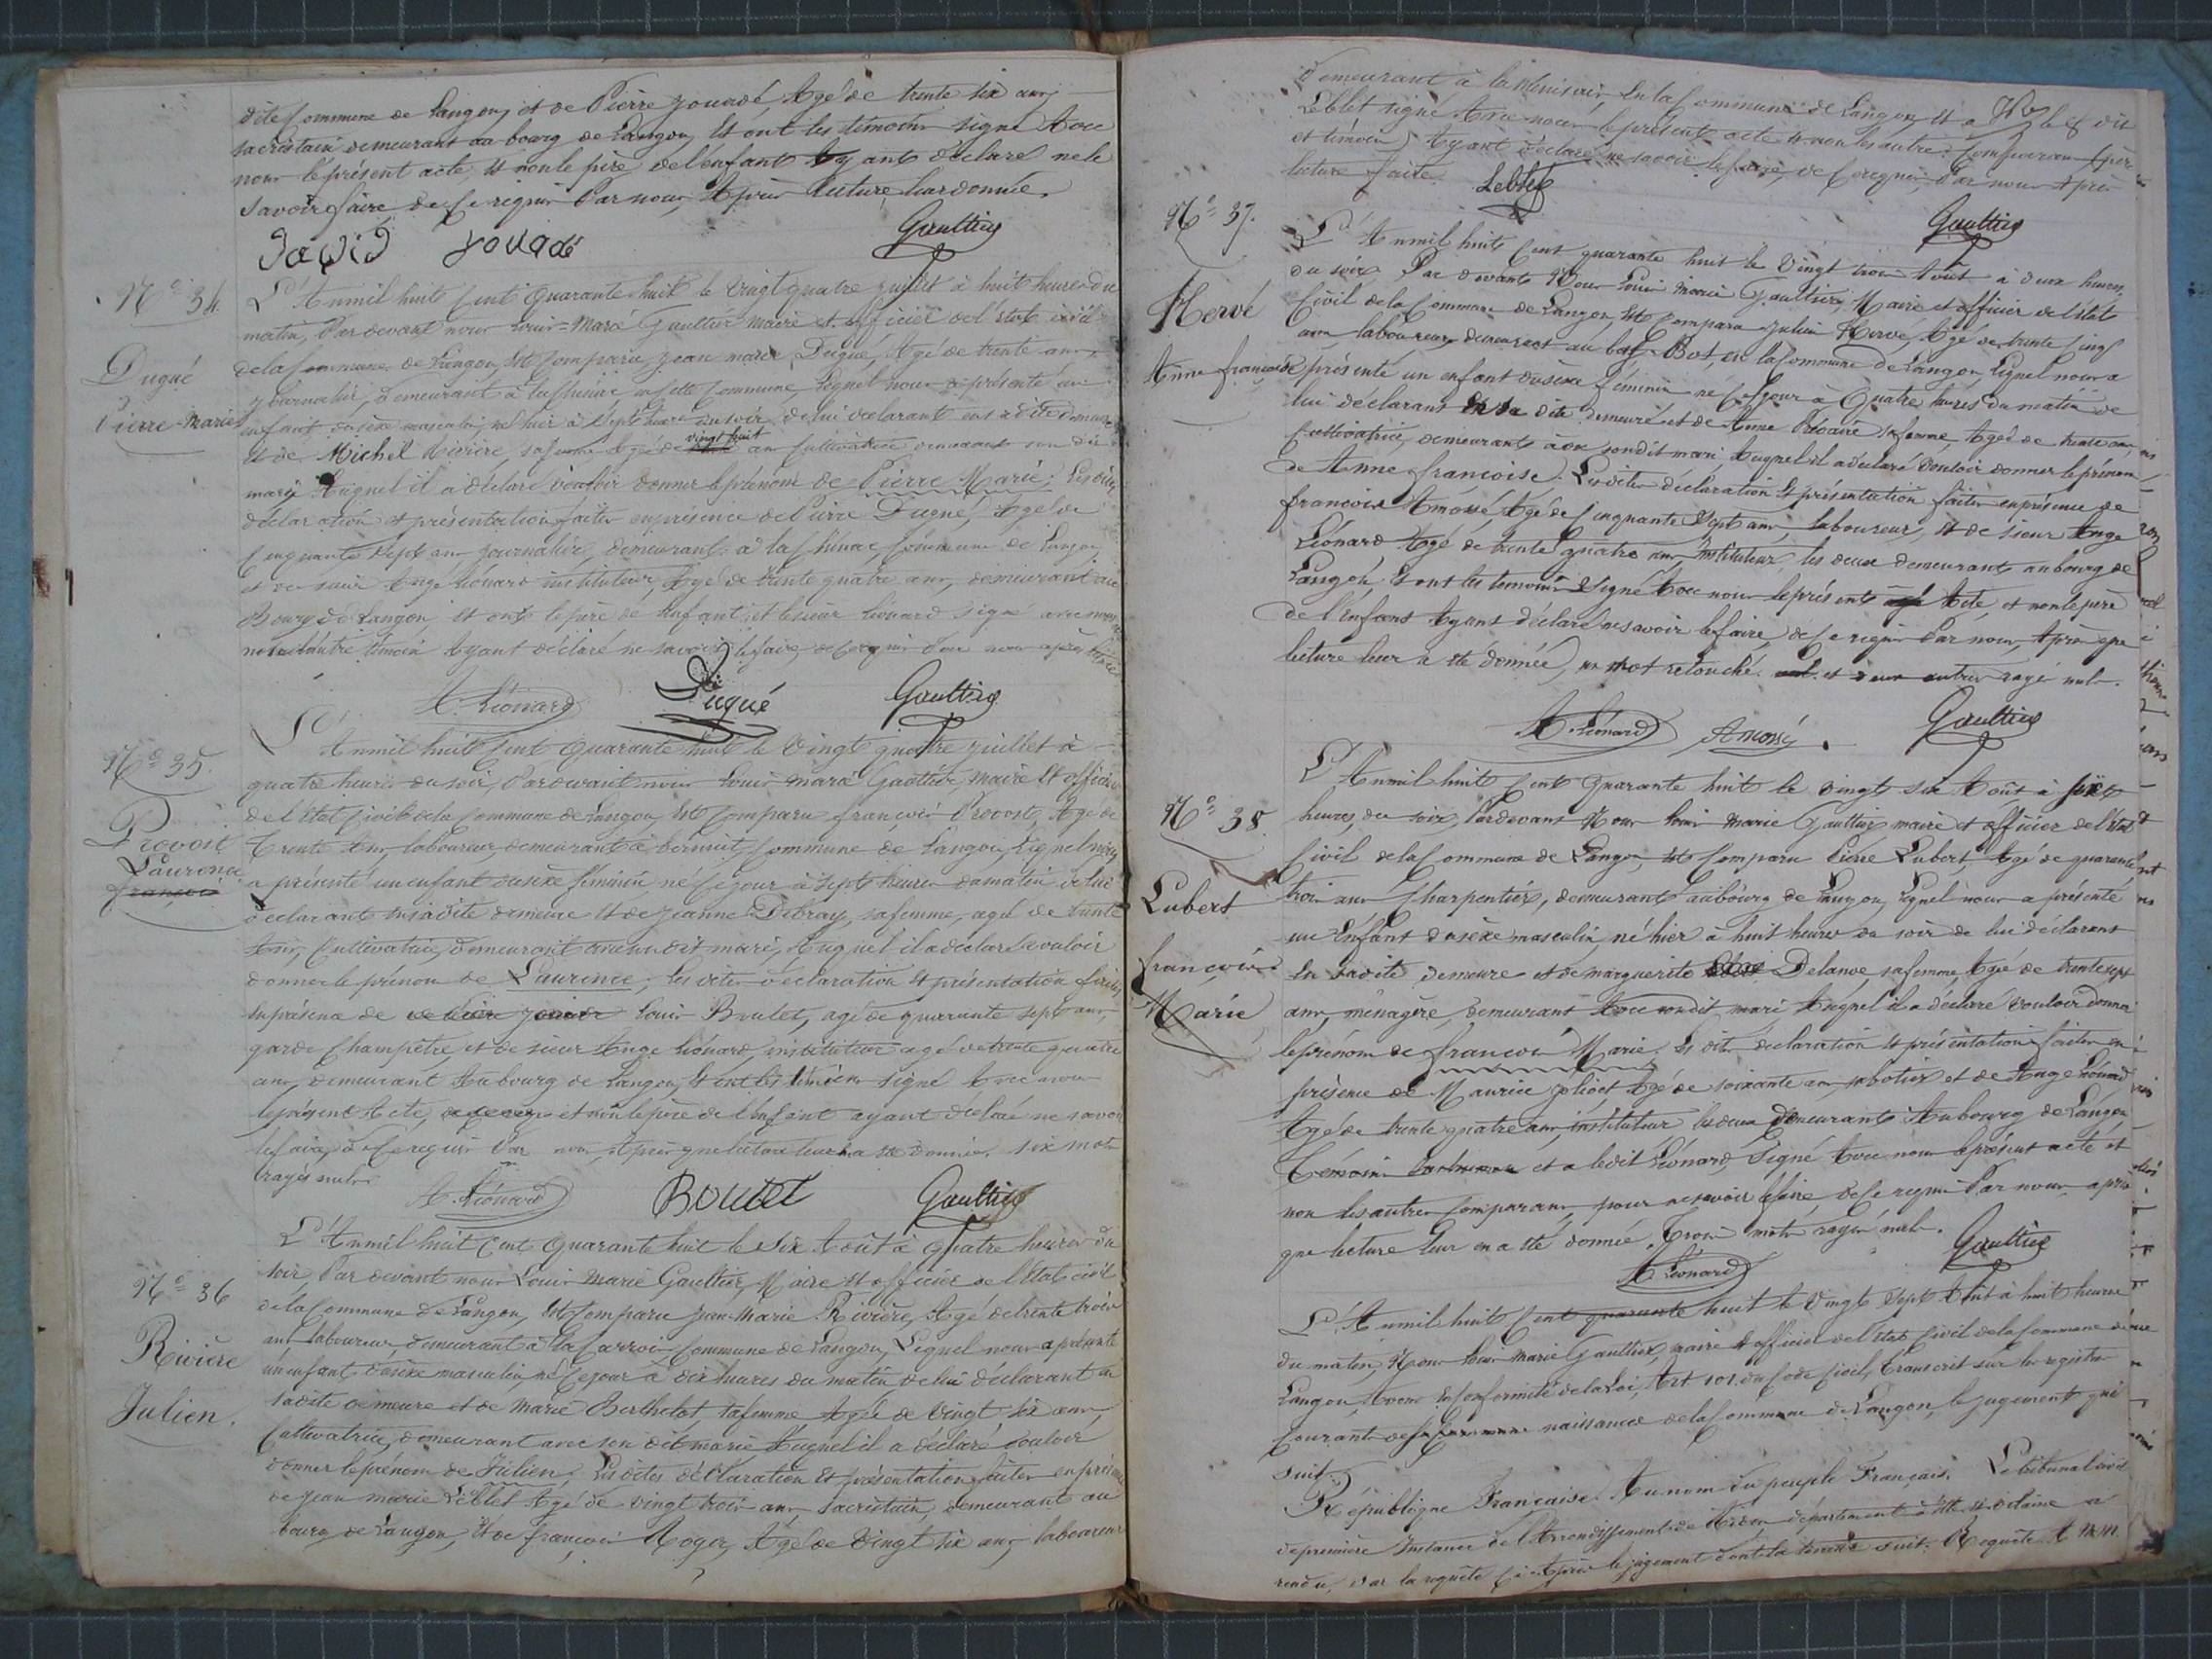 dite commune de Langon, et de Pierre Jouadé, Agé de trente six ans,
sacristain demeurant au bourg de Langon, Et ont les témoins signé Avec
nous le présent acte, et non le père de l'enfant Ayant déclaré ne le
savoir faire, de Ce requis Par nous, Après lecture leur donnée.
David Jouadé Gaultier
N° 34.
Dugué
Pierre-Marie
L'An mil huit Cent Quarante huit le Vingt quatre juillet à huit heures du
matin, Par devant nous Louis-Marie Gaultier maire et officier de l'état civil
de la Commune de Langon, Est Comparu, Jean marie Dugué, Agé de trente ans,
journalier, demeurant à en cette Commune, Lequel nous a présenté un
enfant du sexe masculin, né hier à Sept heures du soir, de lui déclarant en sa dite demeure
et de Michel Rivière, sa femme Agée de vingt huit ans Cultivatrice, demeurant son dit
mari Auquel il a déclaré vouloir donner le prénom de Pierre Marie; Les dites
déclaration et présentation faites en présence de Pierre Dugué, Agé de
Cinquante Sept ans journalier, demeurant à la Commune de Langon,
et de sieur Ange Léonard instituteur, Agé de trente quatre ans, demeurant au
Bourg de Langon, et ont le père de l'enfant et le sieur Léonard signé avec nous
non l'autre témoin Ayant déclaré ne savoir le faire, de Ce requis Par nous après lecture
A. Léonard Dugué Gaultier
N° 35.
Provost
Laurence
françois
L'An mil huit Cent Quarante huit le Vingt quatre juillet à
quatre heures du soir, Par devant nous Louis marie Gaultier, maire et officier
de l'Etat Civil de la Commune de Langon, Est Comparu françois Provost, Agé de
Trente Ans, laboureur, demeurant à Commune de Langon, Lequel nous
a présenté un enfant du sexe féminin né Ce jour à Sept heures du matin de lui
déclarant en sa dite demeure et de Jeanne Debray, sa femme, agée de trente
Ans, Cultivatrice, demeurant avec son dit mari, Auquel il a déclaré vouloir
donner le prénom de Laurence, les dites déclaration et présentation faites
En présence de Louis Boulet, agé de quarante sept ans,
garde Champêtre, et de sieur Ange Léonard, instituteur agé de trente quatre
ans, demeurant Au bourg de Langon, Et ont les témoins signé Avec nous
le présent Acte, et non le père de l'Enfant ayant déclaré ne savoir
le faire, de Ce requis Par nous, Après que lecture leur en a été donnée. six mots
rayés nuls.
A. Léonard Boulet Gaultier
N° 36
Rivière
Julien.
L'An mil huit Cent Quarante huit le Six Août à quatre heures du
soir, Par devant nous Louis Marie Gaultier, Maire et officier de l'état civil
de la Commune de Langon, Est Comparu Jean-Marie Rivière, Agé de trente trois
ans laboureur, demeurant à la Carroir Commune de Langon, Lequel nous a présenté
un enfant du sexe masculin, né Ce jour à dix heures du matin, de lui déclarant en
sa dite demeure et de Marie Berthelot, sa femme, Agée de Vingt six ans,
Cultivatrice, demeurant avec son dit marie Auquel il a déclaré vouloir
donner le prénom de Julien. Les dites déclaration Et présentation faites en présence
de Jean marie Leblet Agé de vingt trois ans, sacristain, demeurant au
bourg de Langon, Et de françois Roger, Agé de Vingt six ans, laboureur
demeurant à la En la Commune de Langon, et a ledit
Leblet signé Avec nous le présent acte et non les autres Comparans père
et témoin, Ayant déclaré ne savoir le faire, de Ce requis, Par nous Après
lecture faite. Leblet
Gaultier
N° 37.
Hervé
Anne françoise
L'An mil huit Cent quarante huit le Vingt trois Août à deux heures
du soir, Par devant Nous Louis Marie Gaultier, Maire et officier de l'état
Civil de la Commune de Langon, Est Comparu Julien Hervé, Agé de trente Cinq
ans, laboureur, demeurant au bas Bot, en la Commune de Langon, Lequel nous a
présenté un enfant du sexe féminin né Ce jour à Quatre heures du matin de
lui déclarant En sa dite demeure et de Anne sa femme Agée de trente ans,
Cultivatrice, demeurant avec son dit mari Auquel il a déclaré Vouloir donner le prénom
de Anne françoise. Les dites déclaration Et présentation faites en présence de
françois Amossé, Agé de Cinquante Sept ans, laboureur, et de sieur Ange
Léonard Agé de trente quatre ans, Instituteur, les deux demeurant au bourg de
Langon, Et ont les témoins Signé Avec nous le présent Acte, et non le père
de l'Enfant Ayant déclaré ne savoir le faire, de Ce requis Par nous, Après que
lecture leur a été donnée, un mot retouché et deux autres rayés nuls.
A. Léonard Amossé. Gaultier
N° 38.
Lubert
françois
Marie
L'An mil huit Cent Quarante huit le vingt six Août à six
heures, du soir, Par devant Nous Louis Marie Gaultier maire et officier de l'état
Civil de la Commune de Langon, Est Comparu Pierre Lubert, Agé de quarante
trois ans Charpentier, demeurant au bourg de Langon, Lequel nous a présenté
un Enfant du sexe masculin, né hier à huit heures du soir de lui déclarant
En sa dite demeure et de marguerite Delanoë, sa femme, Agée de trente sept
ans, ménagère, demeurant Avec son dit mari Auquel il a déclaré vouloir donner
le prénom de françois Marie. Les dites déclaration Et présentation faites en
présence de Maurice Agé de soixante ans sabotier et de Ange Léonard
Agé de trente quatre ans, instituteur les deux Demeurant Au bourg de Langon,
Témoins et a le dit Léonard, Signé Avec nous le présent acte et
non les autres Comparans, pour ne savoir faire, de Ce requis Par nous après
que lecture leur en a été donnée. Trois mots rayés nuls.
A. Léonard Gaultier
L'An mil huit Cent quarante huit le Vingt Sept Août à huit heures
du matin, Nous Louis Marie Gaultier, maire et officier de l'état Civil de la Commune de
Langon, Avons En Conformité de la Loi, Art. 101. du Code Civil, Transcrit sur les registres
Courants de naissances de la Commune de Langon, le jugement qui
suit.
République Française. Au nom du peuple Français. Le tribunal civil
de première Instance de l'Arrondissement de Redon département d'Ille et Vilaine a
rendu, sur la requête Ci-Après le jugement dont la teneur suit. Requête A M.M.